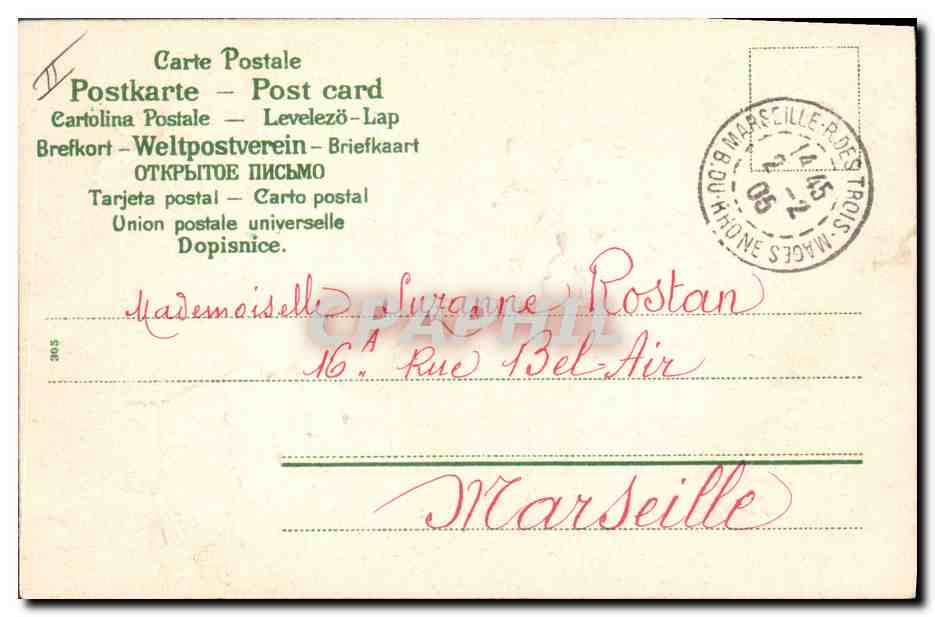 II
Carte Postale
Postkarte – Post card
Cartolina Postale — Levelezö-Lap
Brefkort – Weltpostverein – Briefkaart
ОТКРЫТОЕ ПИСЬМО
Tarjeta postal — Carto postal
Union postale universelle
Dopisnice.
MARSEILLE-R. DES TROIS-MAGES B. DU RHONE
14 45
2 -2
05
Mademoiselle Suzanne Rostan
16A Rue Bel-Air
Marseille
305
CPAPHIL